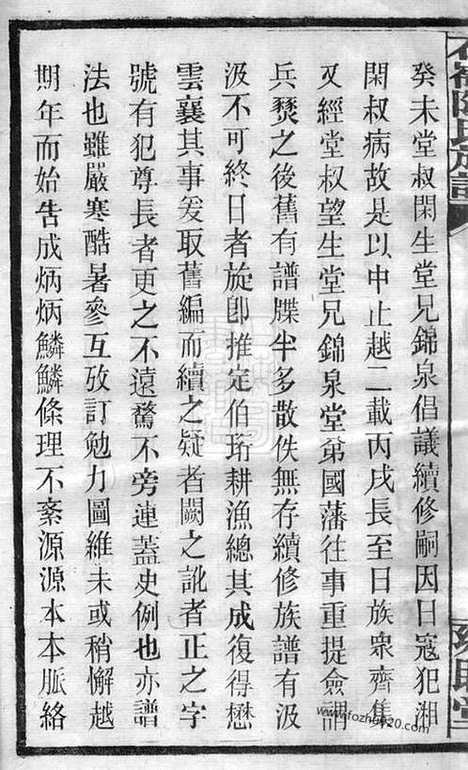 癸未堂叔閑生堂兄錦泉倡議續修嗣因日寇犯湘
閑叔病故是以中止越二載丙戌長至日族衆齊集
又經堂叔望生堂兄錦泉堂弟國藩往事重提僉謂
兵燹之後舊有譜牒半多散佚無存續修族譜有汲
汲不可終日者旋卽推定伯珩耕漁總其成復得懋
雲襄其事爰取舊編而續之疑者闕之訛者正之字
號有犯尊長者更之不遠騖不旁連蓋史例也亦譜
法也雖嚴寒酷暑參互攷訂勉力圖維未或稍懈越
期年而始吿成炳炳鱗鱗條理不紊源源本本脈絡
www.fozhg920.com